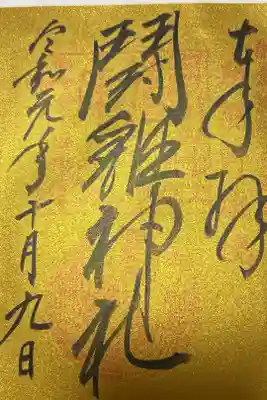 奉拝
闘雞神社
令和元年十月九日